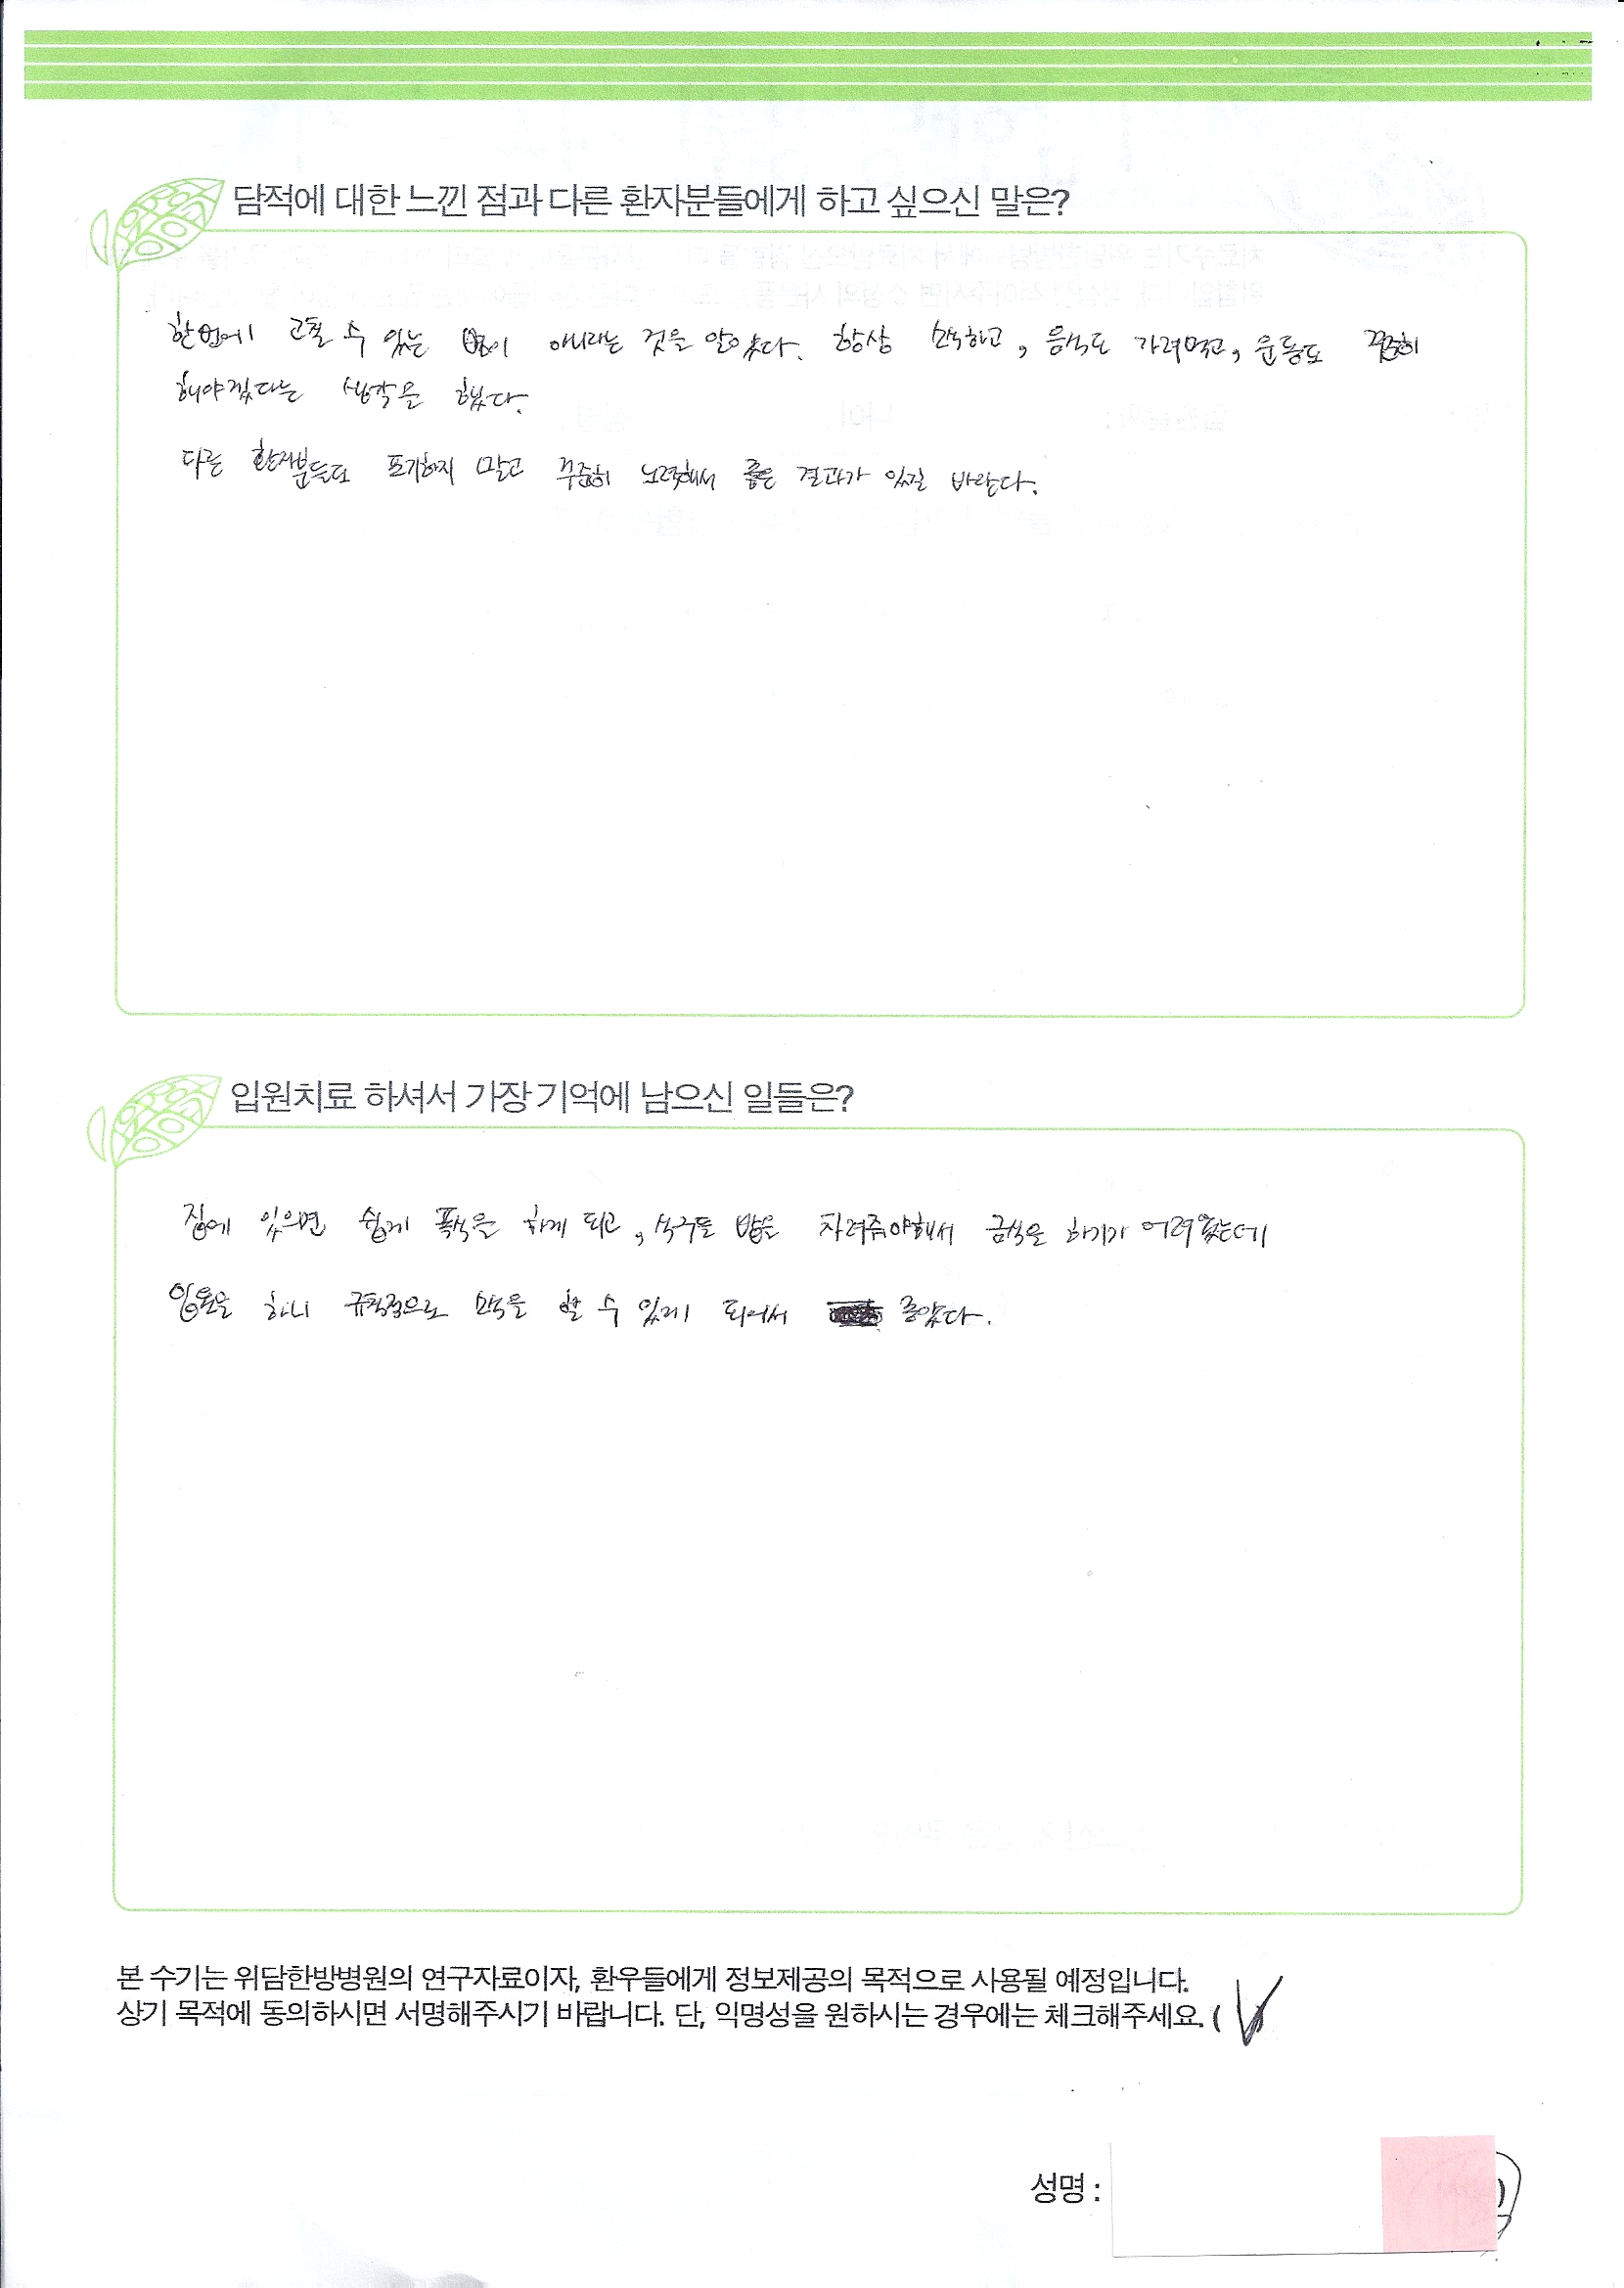 담적에 대한 느낀 점과 다른 환자분들에게 하고 싶으신 말은?
한번에 고칠 수 있는 병이 아니라는 것을 알았다. 항상 소식하고, 음식도 가려먹고, 운동도 꾸준히
해야겠다는 생각을 했다.
다른 환자분들도 포기하지 말고 꾸준히 노력해서 좋은 결과가 있길 바란다.
입원치료 하셔서 가장 기억에 남으신 일들은?
집에 있으면 쉽게 폭식을 하게 되고, 식구들 밥은 차려줘야해서 금식을 하기가 어려웠는데
입원을 하니 규칙적으로 소식을 할 수 있게 되어서 좋았다.
본 수기는 위담한방병원의 연구자료이자, 환우들에게 정보제공의 목적으로 사용될 예정입니다.
상기 목적에 동의하시면 서명해주시기 바랍니다. 단, 익명성을 원하시는 경우에는 체크해주세요. ( V )
성명 :